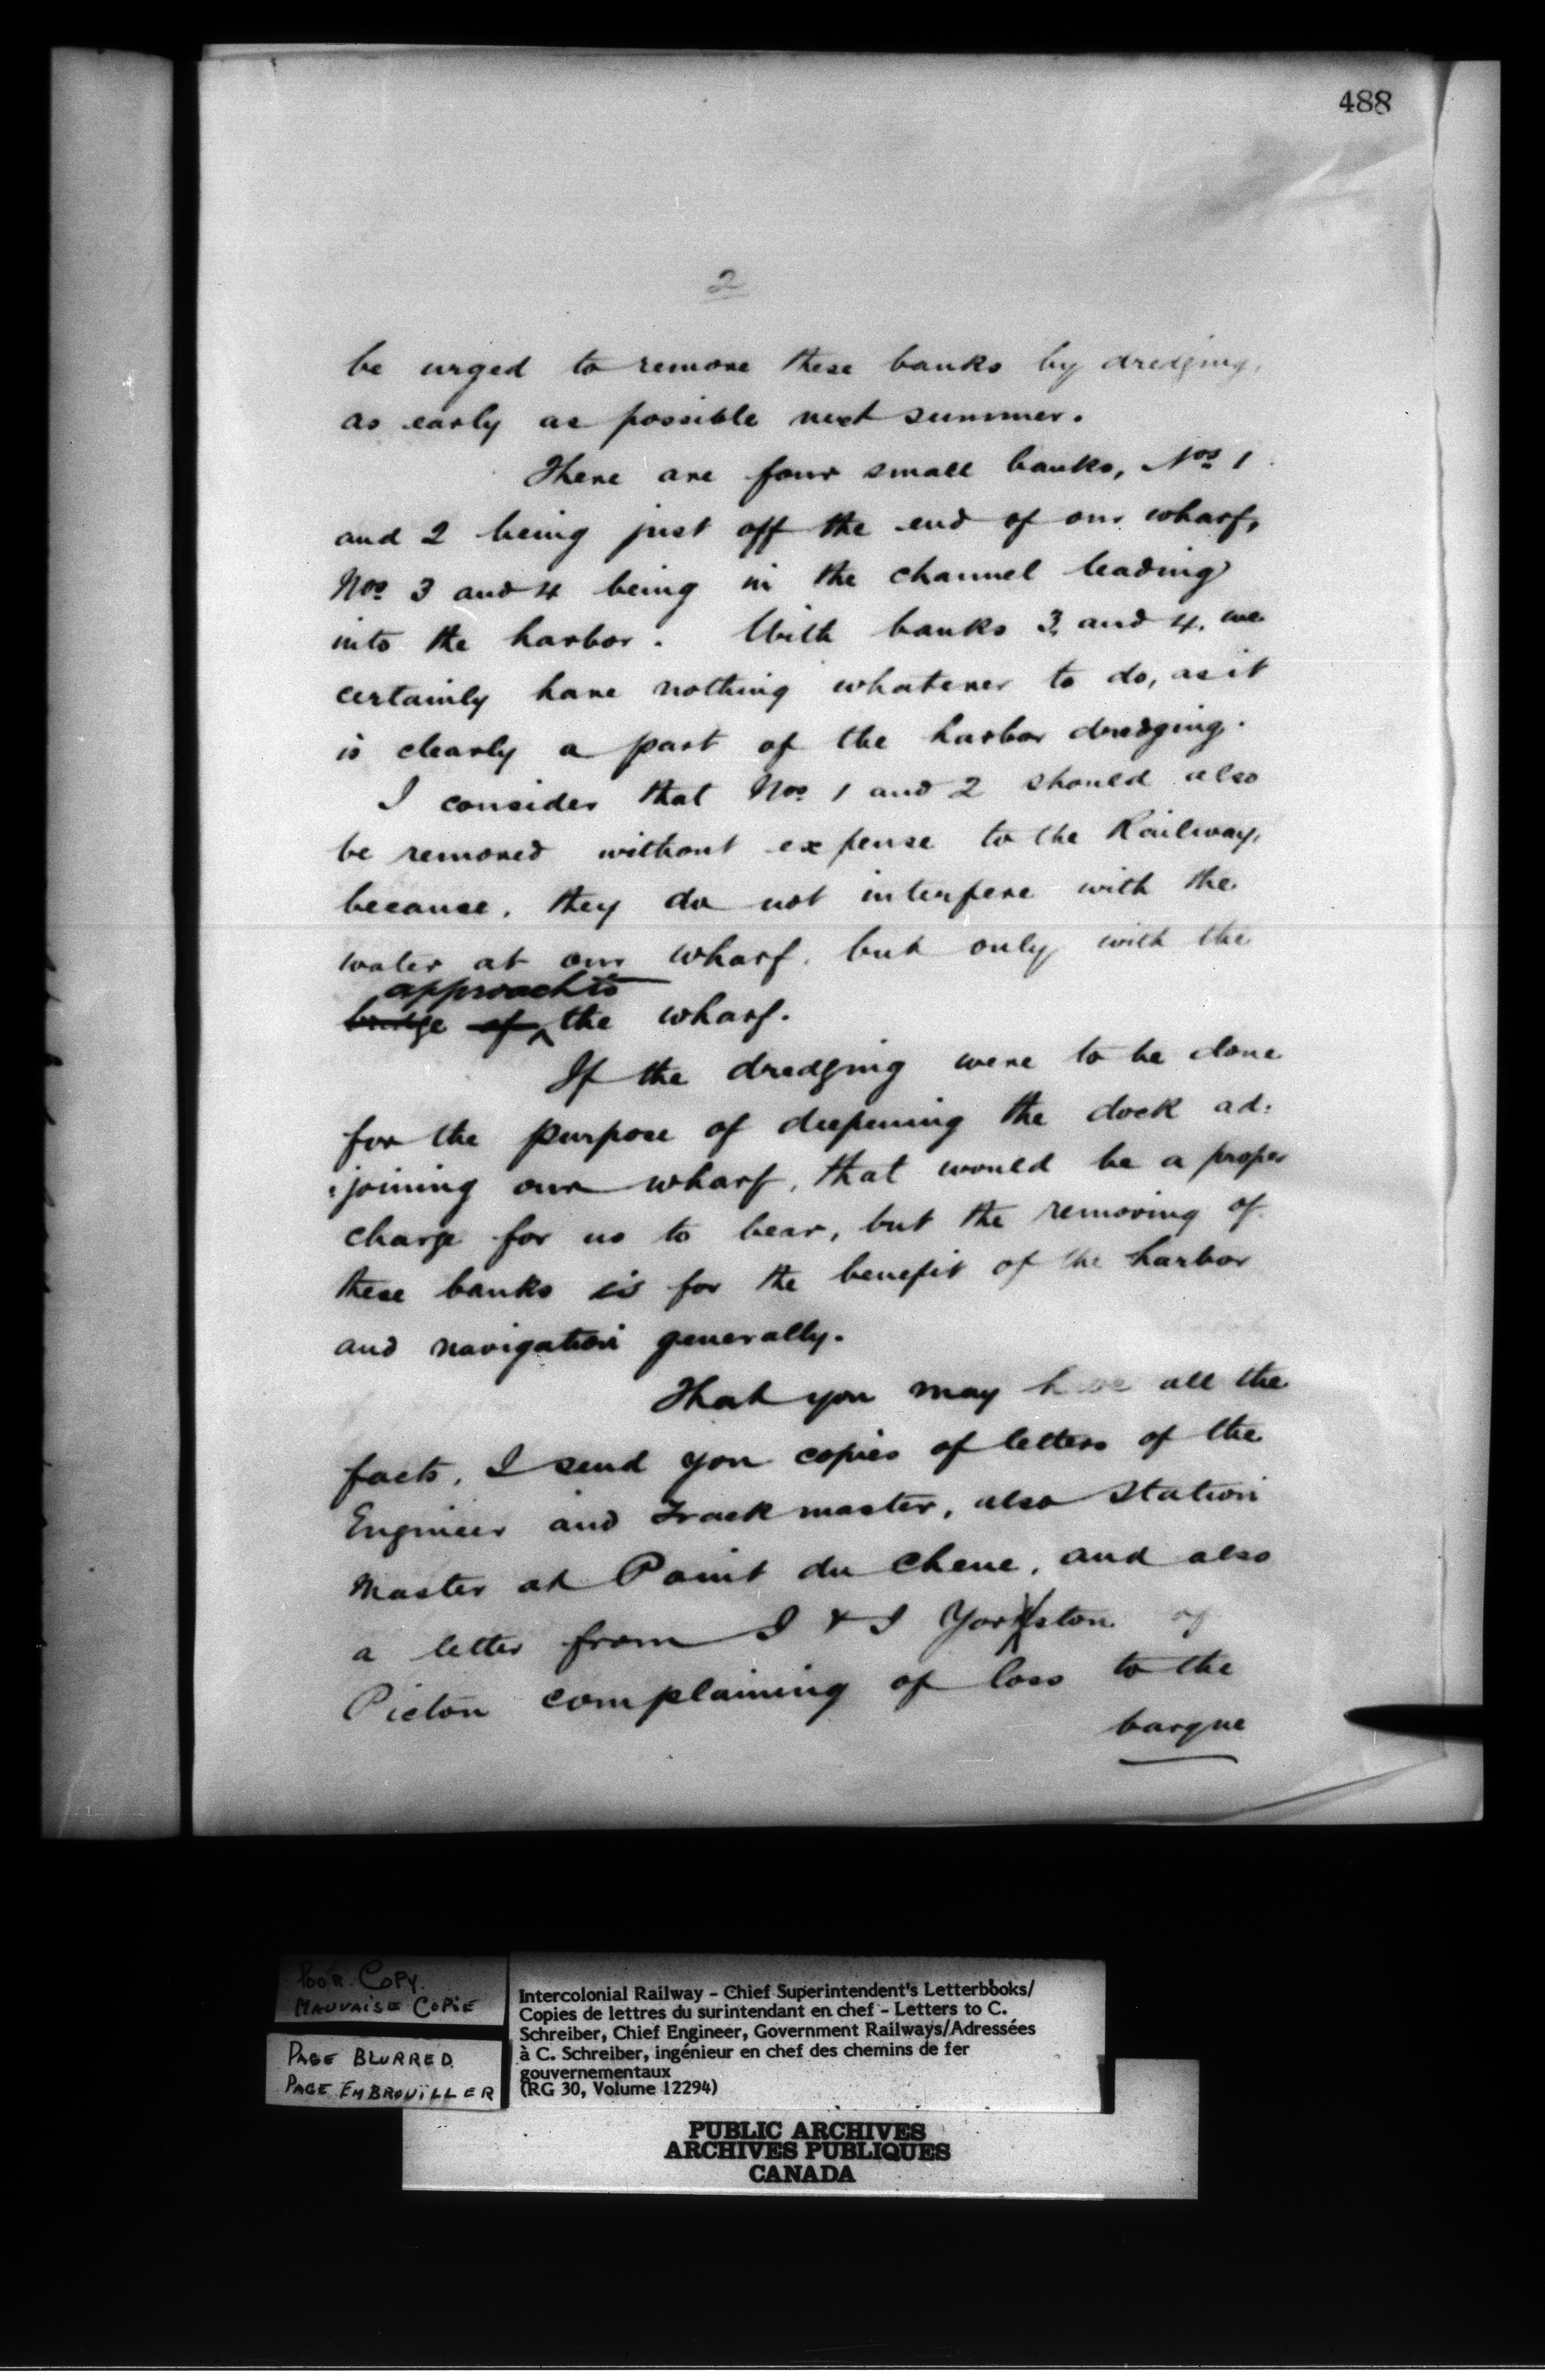 488
2
be urged to remove these banks by dredging,
as early as possible next summer.
There are four small banks, Nos 1
and 2 being just off the end of our wharf,
Nos 3 and 4 being in the channel leading
into the harbor. With banks 3 and 4, we
certainly have nothing whatever to do, as it
is clearly a part of the harbor dredging.
I consider that Nos 1 and 2 should also
be removed without expense to the Railway,
because, they do not interfere with the
water at our wharf, but only with the
approach to
bridge of the wharf.
If the dredging were to be done
for the purpose of deepening the dock ad:
:joining our wharf, that would be a proper
charge for us to bear, but the removing of
these banks is for the benefit of the harbor
and navigation generally.
That you may have all the
facts, I send you copies of letters of the
Engineer and Trackmaster, also Station
Master at Point du Chene, and also
a letter from I & I Yorkston of
Pictou complaining of loss to the
barque
POOR COPY.
MAUVAISE COPIE
PAGE BLURRED
PAGE EMBROUILLER
Intercolonial Railway - Chief Superintendent's Letterbooks/
Copies de lettres du surintendant en chef - Letters to C.
Schreiber, Chief Engineer, Government Railways/Adressées
à C. Schreiber, ingénieur en chef des chemins de fer
gouvernementaux
(RG 30, Volume 12294)
PUBLIC ARCHIVES
ARCHIVES PUBLIQUES
CANADA